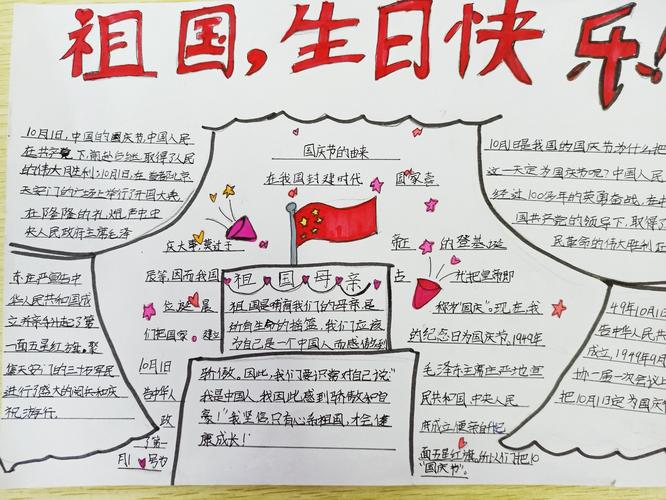 祖国，生日快乐！
10月1日，中国的国庆节，中国人民
在共产党下，前赴后继，取得了人民
的伟大胜利，10月1日，在首都北京
天安门的广场上举行了开国大典，
在隆隆的礼炮声中
央人民政府主席毛泽
东在严宣告中
华人民共和国成
立并亲手升起了第
一面五星红旗。聚
集天安门的三十万军民
进行了盛大的阅兵和庆
祝游行。
国庆节的由来
在我国封建时代 国家喜
庆大事，莫过于 帝 的登基、诞
辰等，因而我国 古 把皇帝即
位诞辰 称为"国庆"。现在，我
们把国家 建立 的纪念日为国庆节。1949年
10月1日 毛泽东主席庄严地宣
告中华人 民共和国,中央人民
政 府成立，便亲自把
了第一 面五星红旗,所以们把10
月1 号为 "国庆节"。
祖国母亲
祖国是哺育我们的母亲,是
幼有生命的摇篮，我们应该
为自己是一个中国人而感做到
骄傲。因此，我们要常常对自己说"
我是中国人，我因此感到骄傲和自
豪！"我坚信，只有心系祖国,才会健
康成长！
10月1日是我国的国庆节为什么把
这一天定为国庆节呢？中国人民
经过100多年的英勇奋战，在
国共产党的领导下，取得了
民革命的伟大胜利
49年10月1日
告中华人民共
成立，1949年9月
协一届一次会议
把10月1日定为国庆